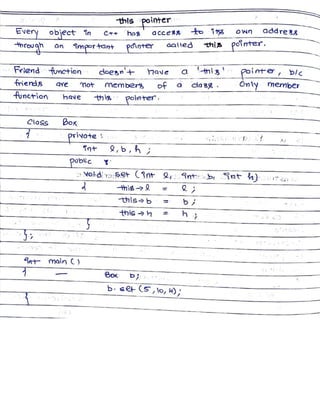 this pointer
Every object in C++ has access to its own address
through an important pointer called this pointer.
Friend function doesn't have a 'this' pointer, b/c
friends are not members of a class. Only member
function have this pointer.
class Box
{ private:
int l, b, h ;
public :
void set (int l, int b, int h)
{ this → l = l ;
this → b = b ;
this → h = h ;
}
};
int main ()
{ — Box b;
b. set (5, 10, 4);
{